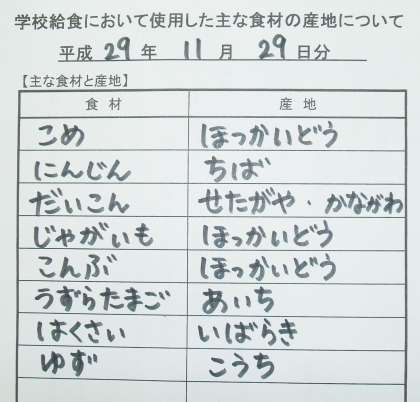 学校給食において使用した主な食材の産地について
平成 29 年 11 月 29 日分
【主な食材と産地】
食材 産地
こめ ほっかいどう
にんじん ちば
だいこん せたがや・かながわ
じゃがいも ほっかいどう
こんぶ ほっかいどう
うずらたまご あいち
はくさい いばらき
ゆず こうち